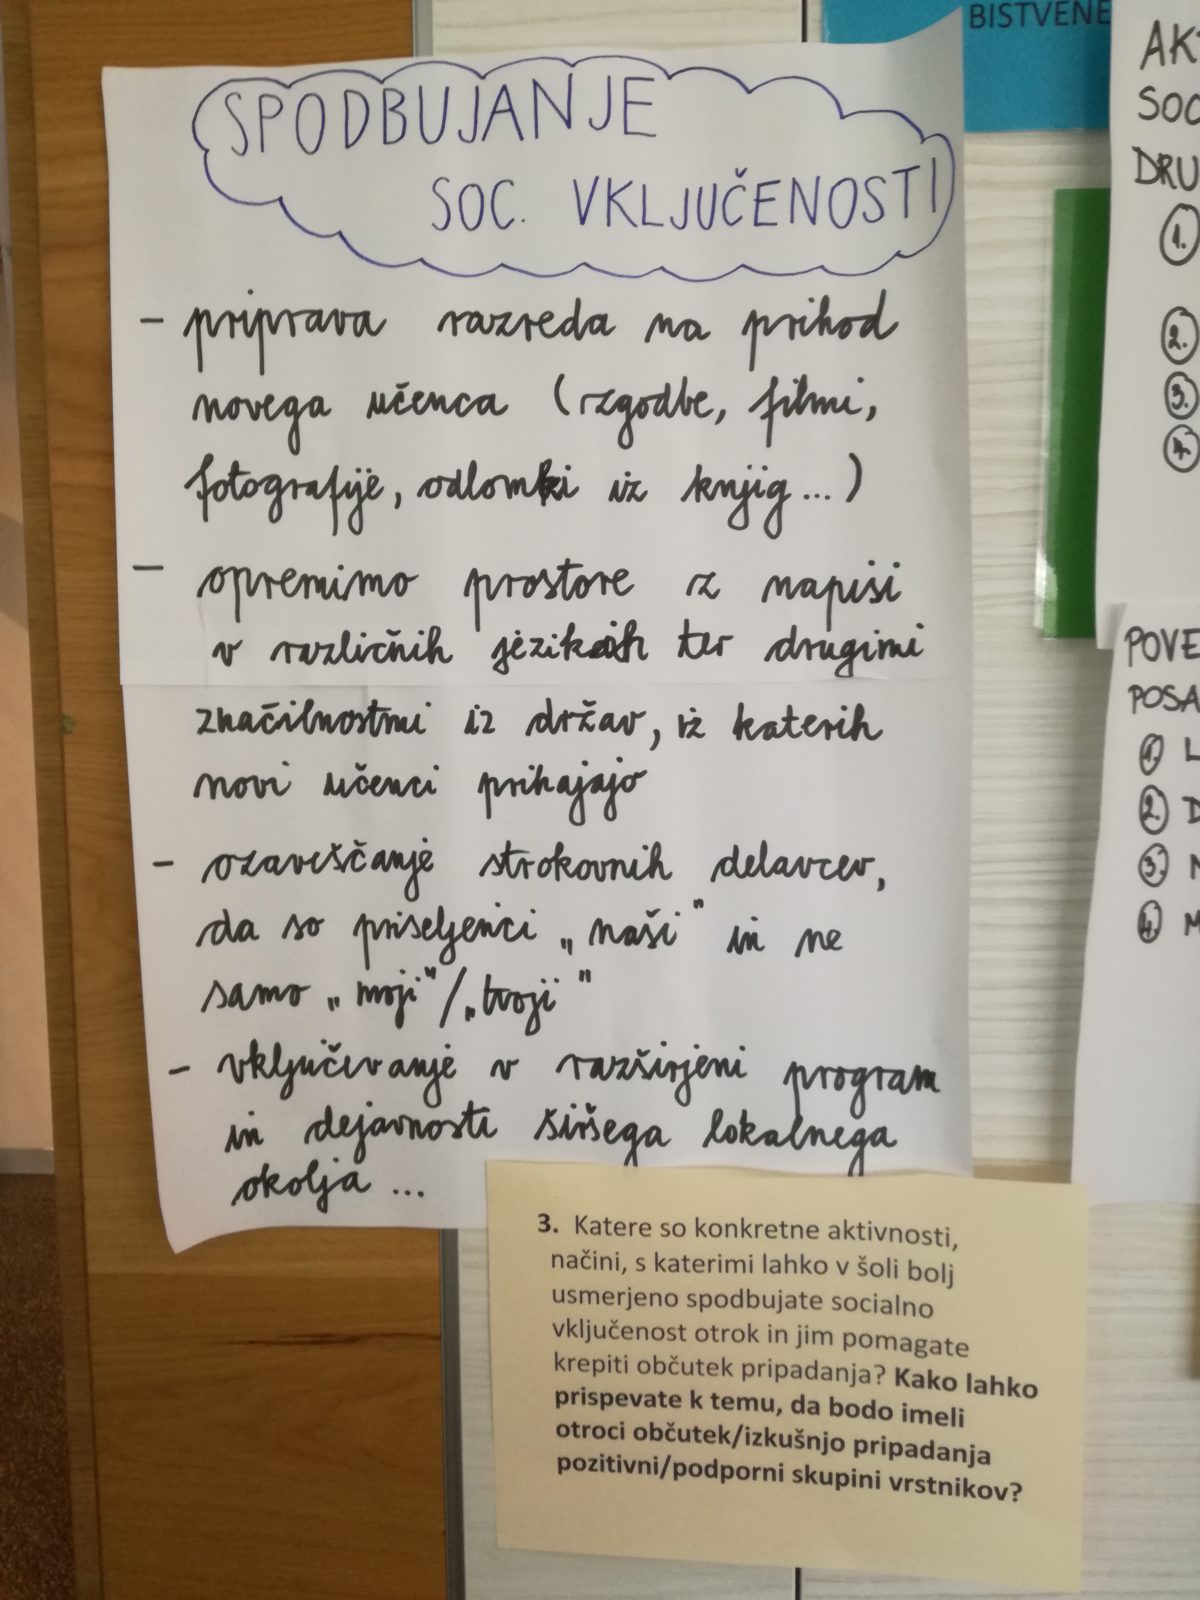 SPODBUJANJE
SOC. VKLJUČENOSTI
– priprava razreda na prihod
novega učenca (zgodbe, filmi,
fotografije, odlomki iz knjig...)
– opremimo prostore z napisi
v različnih jezikih ter drugimi
značilnostmi iz držav, iz katerih
novi učenci prihajajo
– ozaveščanje strokovnih delavcev,
da so priseljenci „naši" in ne
samo „moji"/„tvoji"
– vključevanje v razširjeni program
in dejavnosti širšega lokalnega
okolja ...
3. Katere so konkretne aktivnosti,
načini, s katerimi lahko v šoli bolj
usmerjeno spodbujate socialno
vključenost otrok in jim pomagate
krepiti občutek pripadanja? Kako lahko
prispevate k temu, da bodo imeli
otroci občutek/izkušnjo pripadanja
pozitivni/podporni skupini vrstnikov?
BISTVENE
AK
SOC
DRU
1.
2.
3.
4.
POVE
POSA
1. L
2. D
3.
4. M